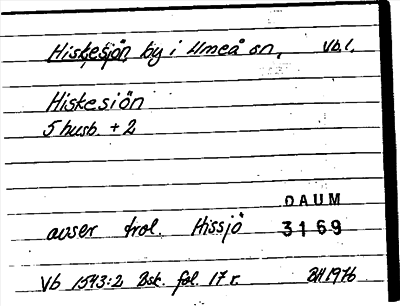 Hiskesjön, by i Umeå sn, Vb.l.
Hiskesiön
5 husb. + 2
DAUM
avser trol. Hissjö 3169
Vb 1543:2 Bsk. fol. 17 r. BH 1976